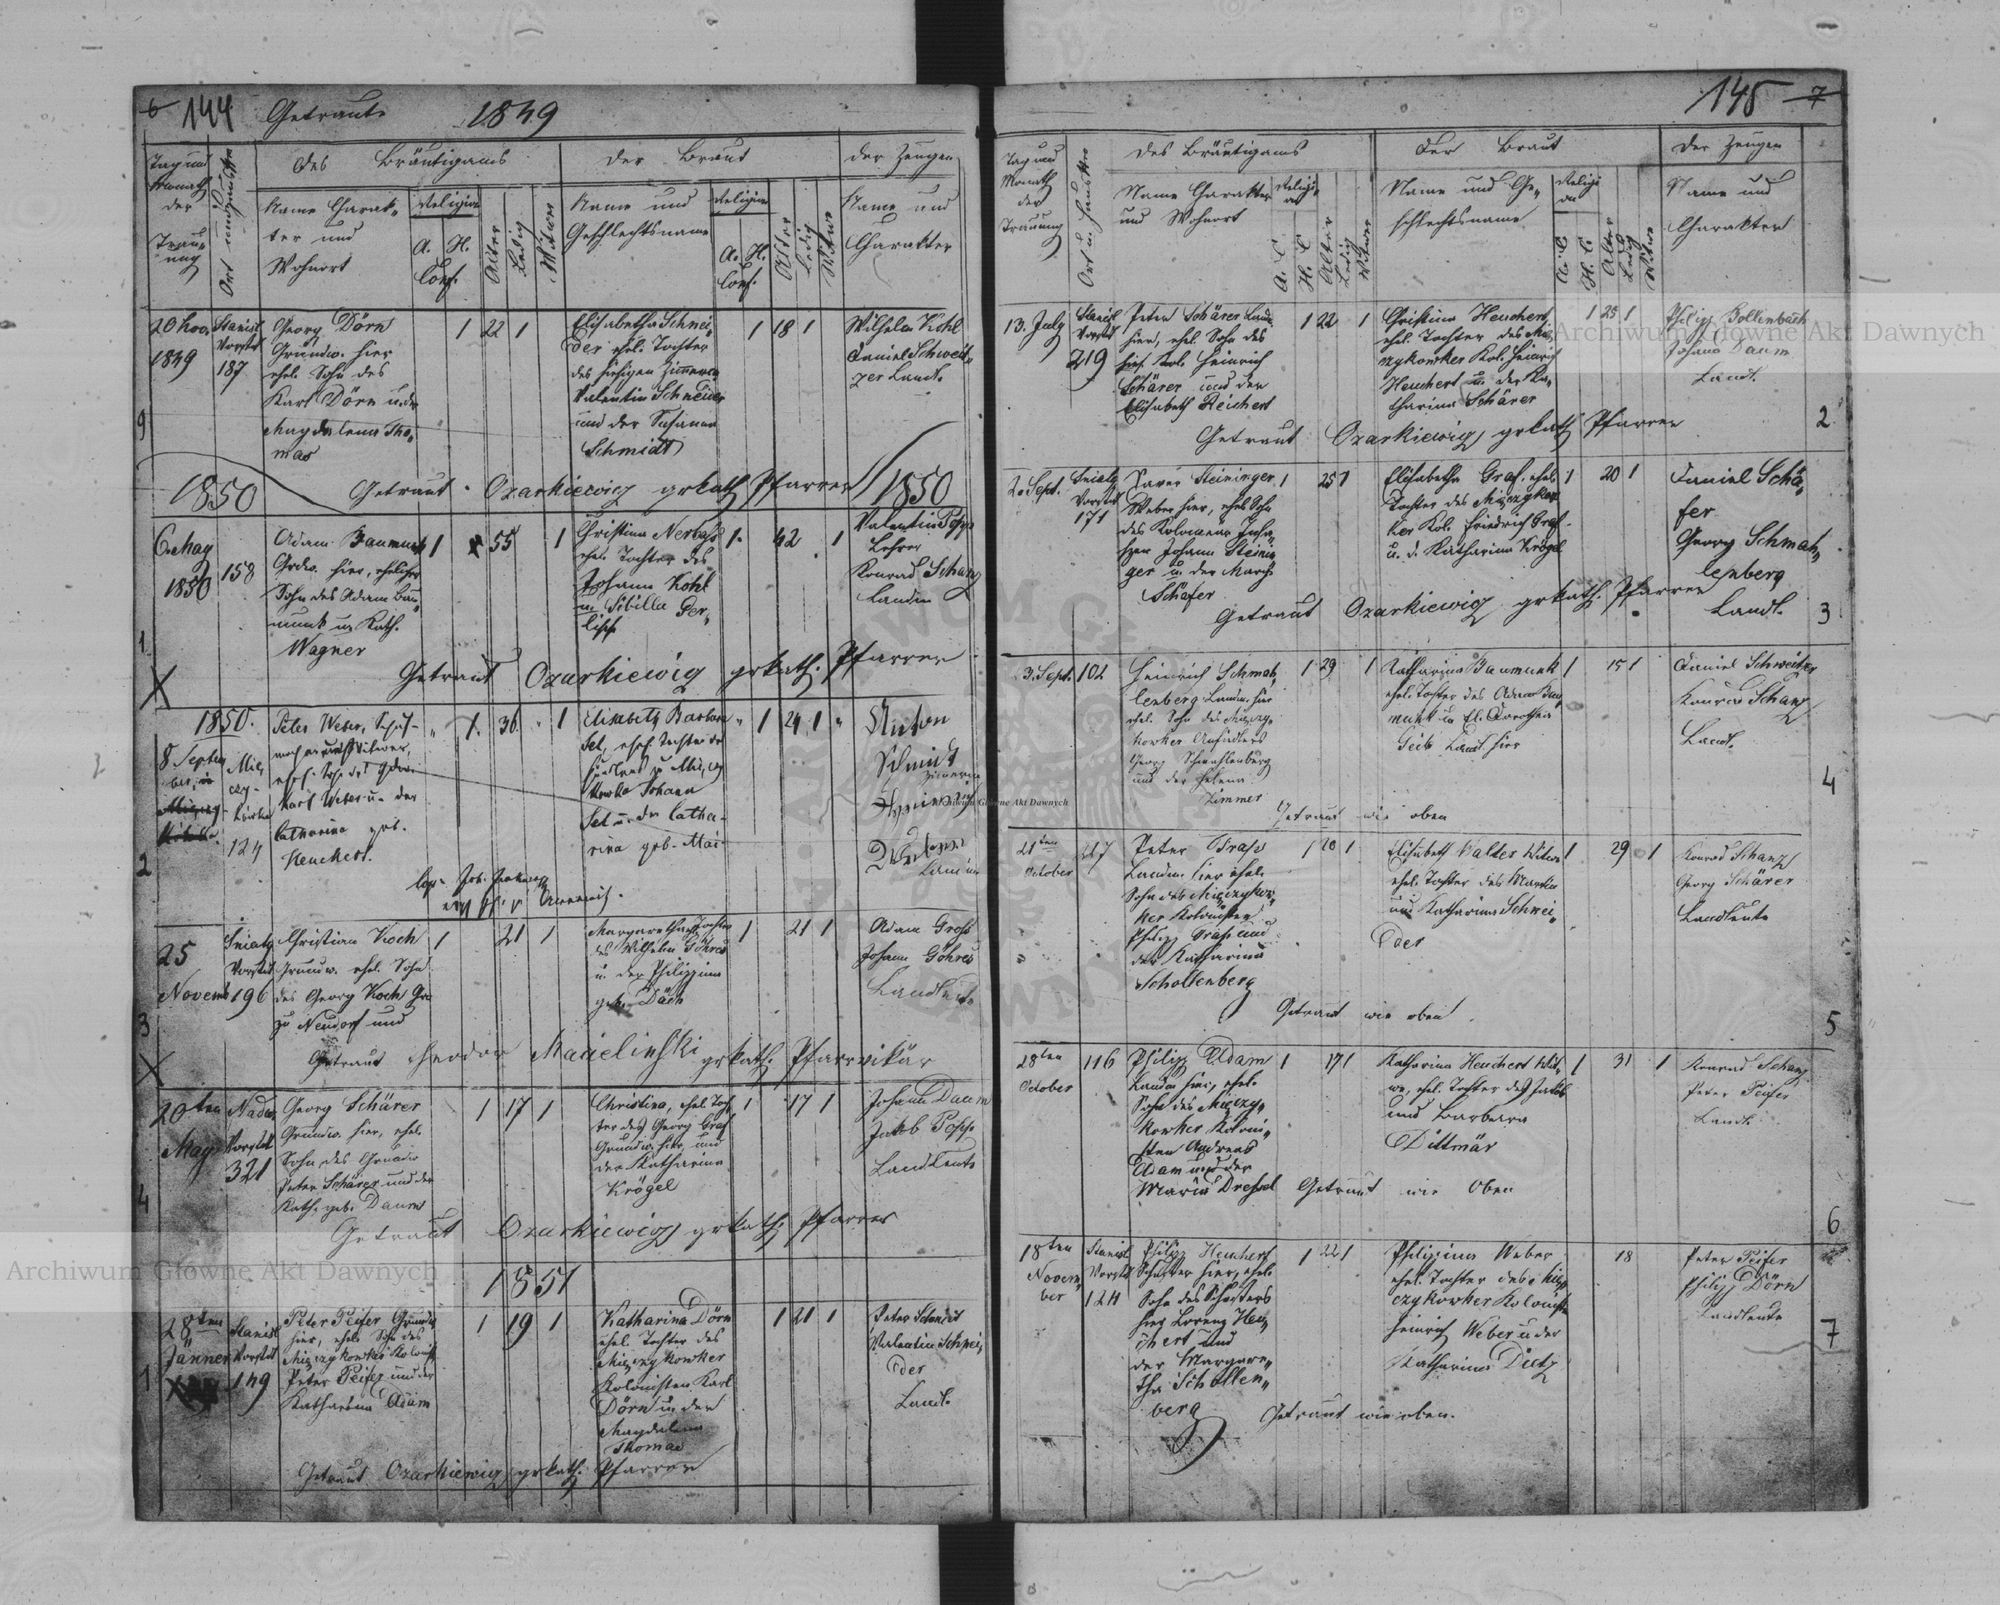 144 Getraute 1849
Tag und Monath der Trauung
Ort und Haus Nro
Des Bräutigams
Der Braut
der Zeugen
Name Charakter und Wohnort
Religion
A. H. Conf.
Alter
Ledig
Witwer
Name und Geschlechtsname
Religion
A. H. Conf.
Alter
Ledig
Witwe
Name und Charakter
20 Nov. 1849
Stanisl. Vorstdt 187
Georg Dörn
Grundw. hier
ehel. Sohn des
Karl Dörn u. der
Magdalena Tho-
mas
1 22 1
Elisabetha Schnei-
der ehel. Tochter
des hiesigen
Valentin Schneider
und der Susanna
Schmidt
1 18 1
Wilhelm Kohl
Daniel Schweit-
zer Landl.
9
1850 Getraut Ozarkiewicz grkath Pfarrer 1850
6. May 1850
158
Adam Baumunk
Grdw. hier, ehelicher
Sohn des Adam Bau-
munk u. Kath.
Wagner
1 55 1
Christina Nerbass
ehel. Tochter des
Johann Kohl
u. Sibilla Ger-
lich
1 42 1
Valentin Popp
Lehrer
Konrad Schanz
Landm
1
Getraut Ozarkiewicz grkath. Pfarrer
1850.
8 Septem
ber
124
Peter Weber,
Karl Weber u. der
Catharina geb.
Heuchert.
1. 36. 1
Elisabeth Barbara
Sel, ehel. Tochter des
Johann
Sel u. der Catha-
rina geb. Mai
1 24 1
Anton
Schmidt
2
25 Novemb
Sniaty Vorstdt 196
Christian Koch
Grundw. ehel. Sohn
des Georg Koch Gr.
zu Neudorf und
1 21 1
Margaretha Tochter
des Wilhelm Göhres
u. der Philippina
geb. Däch
1 21 1
Adam Gross
Johann Göhres
Landleute
3
Getraut Theodor Macielinski grkath. Pfarrvikär
20ten May
Nadw. Vorstdt 321
Georg Schärer
Grundw. hier, ehel.
Sohn des Grundw
Peter Schärer und der
Kath. geb. Daum
1 17 1
Christina, ehel. Toch-
ter des Georg Graf
Grundw. hier und
der Katharina
Krögel
1 17 1
Johann Daum
Jakob Popp
Landleute
4
Getraut Ozarkiewicz grkath. Pfarrer
1851
28ten Jänner
Stanisl Vorstdt 149
Peter Peifer Grundw
hier, ehel. Sohn des
Mięczykowker Kolonist
Peter Peifer und der
Katharina Adam
1 19 1
Katharina Dörn
ehel. Tochter des
Mięczykowker
Kolonisten Karl
Dörn u. der
Magdalena
Thomas
1 21 1
Peter Schmidt
Valentin Schnei-
der
Landl.
1
Getraut Ozarkiewicz grkath. Pfarrer
145
Tag und Monath der Trauung
Ort u. Haus Nro
Des Bräutigams
Der Braut
Der Zeugen
Name Charakter
und Wohnort
Religi-
on
A. C.
H. C.
Alter
Ledig
Witwer
Name und Ge-
schlechtsname
Religi
on
A. C.
H. C.
Alter
Ledig
Witwe
Name und
Charakter
13. July
Stanisl Vorstdt 219
Peter Schärer Landm
hier, ehel. Sohn des
hies. Kol. Heinrich
Schärer und der
Elisabeth Reichert
1 22 1
Christina Heuchert,
ehel. Tochter des Mię-
zykowker Kol. Heinrich
Heuchert u. der Ka-
tharina Schärer
1 25 1
Philipp Bollenbach
Johann Daum
Landl.
2
Getraut Ozarkiewicz grkath Pfarrer
2. Sept.
Sniaty Vorstdt 171
Xaver Steininger
Weber hier, ehel. Sohn
des Kolomear Insa-
ssen Johann Steinin
ger u. der March
Schäfer
1 25 1
Elisabetha Graf, ehel.
Tochter des Mięczykow
ker Kol. Friedrich Graf
u. d. Katharina Krögel
1 20 1
Daniel Schä-
fer
Georg Schmah-
lenberg
Landl.
3
Getraut Ozarkiewicz grkath. Pfarrer
3. Sept. 102
Heinrich Schmah-
lenberg Landm. hier
ehel. Sohn des Mięczy-
kowker Ansiedlers
Georg Schmahlenberg
und der Helena
Zimmer
1 29 1
Katharina Baumunk
ehel. Tochter des Adam Bau
munk u. El. Dorothea
Geib Landl. hier
1 15 1
Daniel Schweitzer
Konrad Schanz
Landl.
4
Getraut wie oben
21ten October
Peter Grass
Landm. hier ehel.
Sohn des Mięczykow-
ker Kolonisten
Philipp Grass und
der Katharina
Schollenberg
1 20 1
Elisabeth Walter Witwe
ehel. Tochter des Martin
und Katharina Schnei-
der
1 29 1
Konrad Schanz
Georg Schärer
Landleute
5
Getraut wie oben
28ten October 116
Philipp Adam
Landm hier, ehel.
Sohn des Mięczy-
kowker Koloni-
sten Andreas
Adam und der
Maria Dressel
1 17 1
Katharina Heuchert Wit-
we, ehel. Tochter des Jakob
und Barbara
Dittmär
1 31 1
Konrad Schanz
Peter Peifer
Landl.
Getraut wie Oben
6
18ten Novem-
ber
Stanisl Vorstdt 124
Philipp Heuchert
Schuster hier, ehel.
Sohn des Schusters
hier Lorenz Heu-
chert und
der Margare-
tha Schollen-
berg
1 22 1
Philippina Weber
ehel. Tochter des Mię-
czykowker Kolonisten
Heinrich Weber u. der
Katharina Dietz
18
Peter Peifer
Philipp Dörn
Landleute
7
Getraut wie oben.
Archiwum Główne Akt Dawnych
Archiwum Główne Akt Dawnych
Archiwum Główne Akt Dawnych